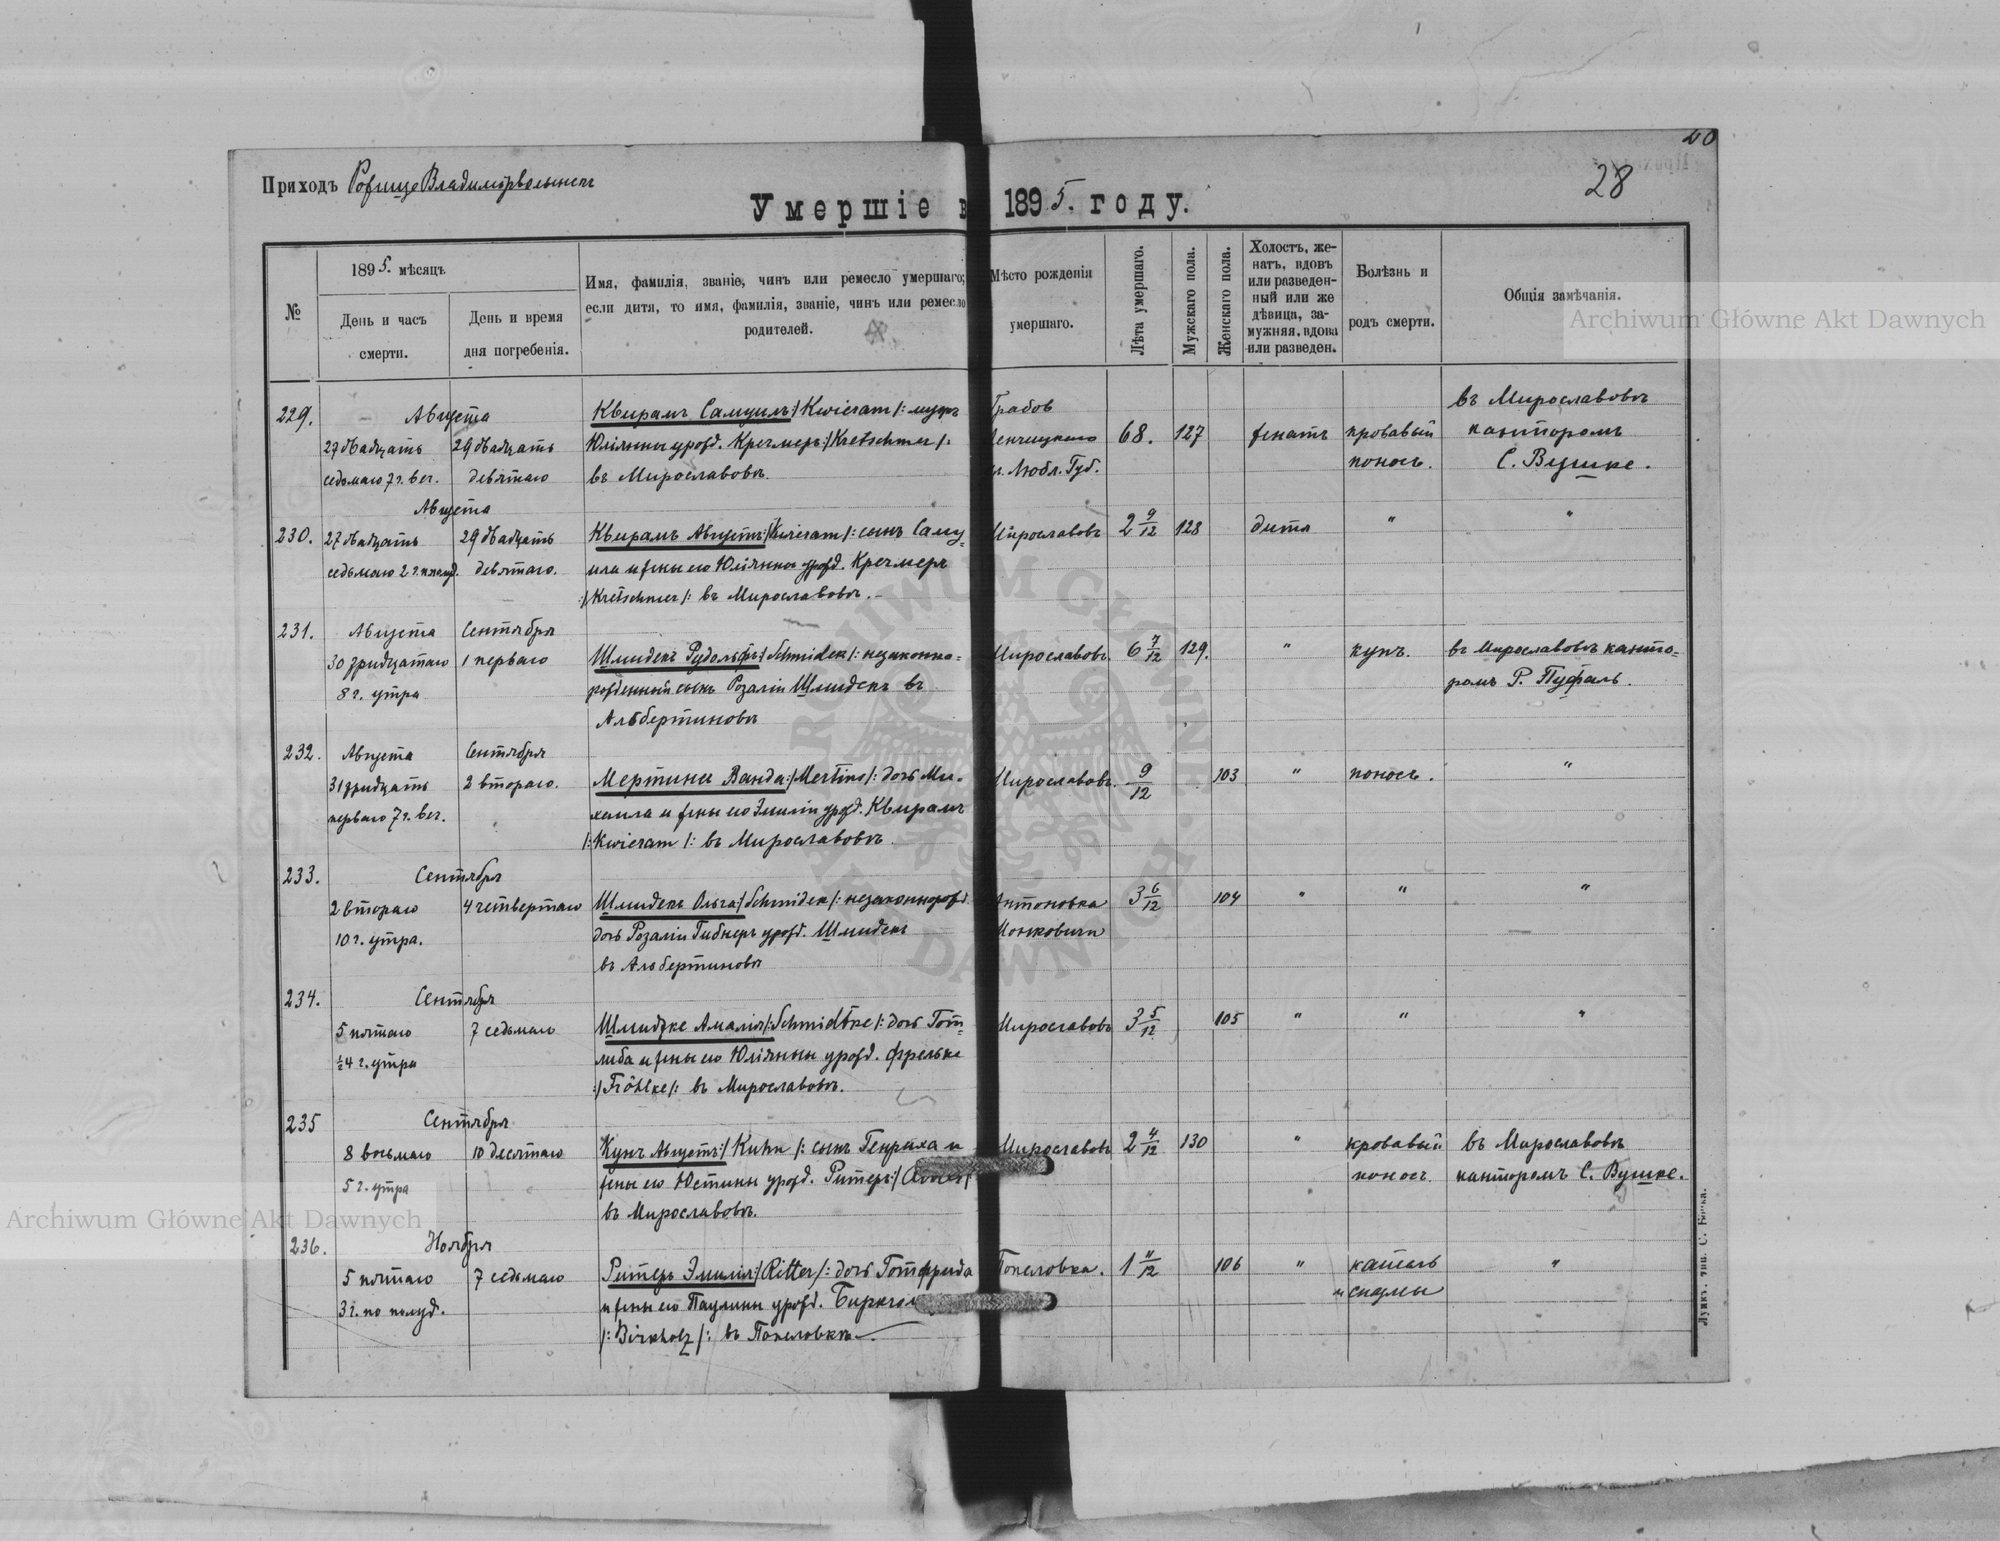 20
28
Приходъ Рожище Владимірволынск
Умершіе в 1895. году.
№
1895. мѣсяцъ
День и часъ смерти.
День и время дня погребенія.
Имя, фамилія, званіе, чинъ или ремесло умершаго;
если дитя, то имя, фамилія, званіе, чинъ или ремесло
родителей.
Мѣсто рожденія
умершаго.
Лѣта умершаго.
Мужскаго пола.
Женскаго пола.
Холостъ, же-
натъ, вдовъ
или разведен-
ный или же
дѣвица, за-
мужняя, вдова
или разведен.
Болѣзнь и
родъ смерти.
Общія замѣчанія.
Archiwum Główne Akt Dawnych
229. Августа Квирамъ Самуилъ /:Kwieram/: мужъ Грабов въ Мирославовкѣ
27 двадцать 29 двадцать Юліянны урожд. Кречмеръ /:Kretschmer/: Ленчицкаго 68. 127 женатъ кровавый канторомъ
седьмаго 7 ч. веч. девятаго въ Мирославовкѣ. Любл. Губ. поносъ. С. Вушке.
Августа
230. 27 двадцать 29 двадцать Квирамъ Августъ /:Kwieram/: сынъ Саму- Мирославовъ 2 9/12 128 дитя " "
седьмаго 2 ч. пополуд. девятаго. ила и жены его Юліянны урожд. Кречмеръ
/:Kretschmer/: въ Мирославовкѣ.
231. Августа Сентября
30 тридцатаго 1 перваго Шмидекъ Рудольфъ /:Schmidek/: незаконно- Мирославовъ. 6 7/12 129. " купъ. въ Мирославовкѣ канто-
8 ч. утра рожденный сынъ Розаліи Шмидекъ въ ромъ Р. Пуфаль.
Альбертиновкѣ
232. Августа Сентября
31 тридцать 2 втораго. Мертинъ Ванда /:Mertins/: дочь Ми- Мирославовъ. 9/12 103 " поносъ. "
перваго 7 ч. веч. хаила и жены его Эмиліи урожд. Квирамъ
/:Kwieram/: въ Мирославовкѣ.
233. Сентября
2 втораго 4 четвертаго Шмидекъ Ольга /:Schmidek/: незаконнорожд. Антоновка 3 6/12 104 " " "
10 ч. утра. дочь Розаліи Гибнеръ урожд. Шмидекъ Монковичи
въ Альбертиновкѣ
234. Сентября
5 пятаго 7 седьмаго Шмидтке Амалія /:Schmidtke/: дочь Гот- Мирославовъ 3 5/12 105 " " "
½4 ч. утра либа и жены его Юліянны урожд. Фрельке
/:Fröhlke/: въ Мирославовкѣ.
235 Сентября
8 восьмаго 10 десятаго Кунъ Августъ /:Kuhn/: сынъ Генриха и Мирославовъ 2 4/12 130 " кровавый въ Мирославовкѣ
5 ч. утра жены его Юстины урожд. Ритеръ поносъ. канторомъ С. Вушке.
въ Мирославовкѣ.
236. Ноября
5 пятаго 7 седьмаго Ритеръ Эмилія /:Ritter/: дочь Готфрида Топеловка. 1 11/12 106 " кашель "
3 ч. по полуд. и жены его Паулины урожд. Биркгол и спазмы
/:Birkholz/: въ Топеловкѣ
Луцкъ. тип. С. Бонка.
Archiwum Główne Akt Dawnych
ARCHIWUM GŁÓWNE AKT DAWNYCH